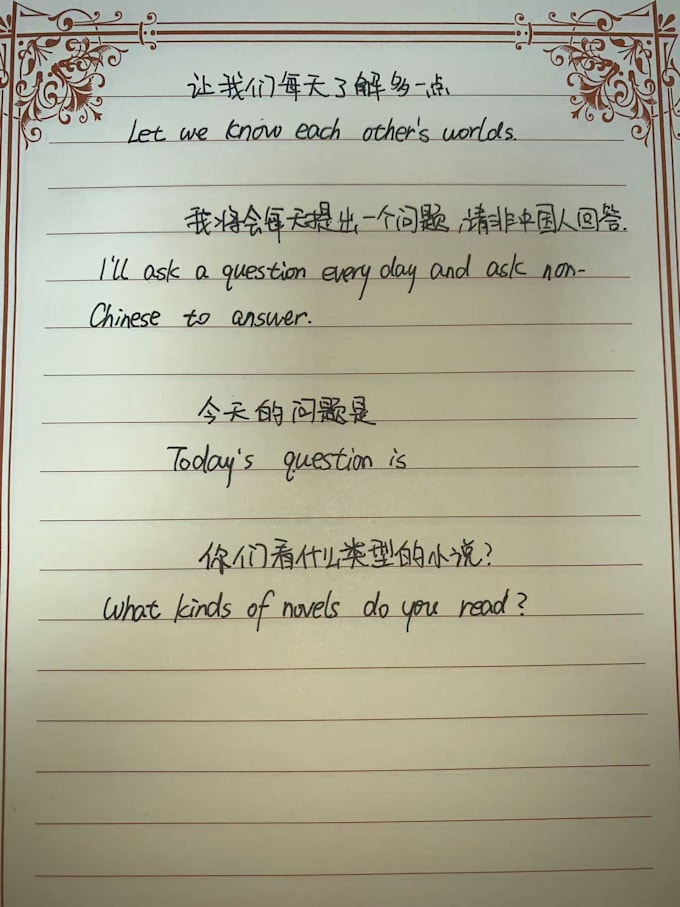 让我们每天了解多一点
Let we know each other's worlds.
我将会每天提出一个问题,请非中国人回答.
I'll ask a question every day and ask non-
Chinese to answer.
今天的问题是
Today's question is
你们看什么类型的小说?
What kinds of novels do you read?